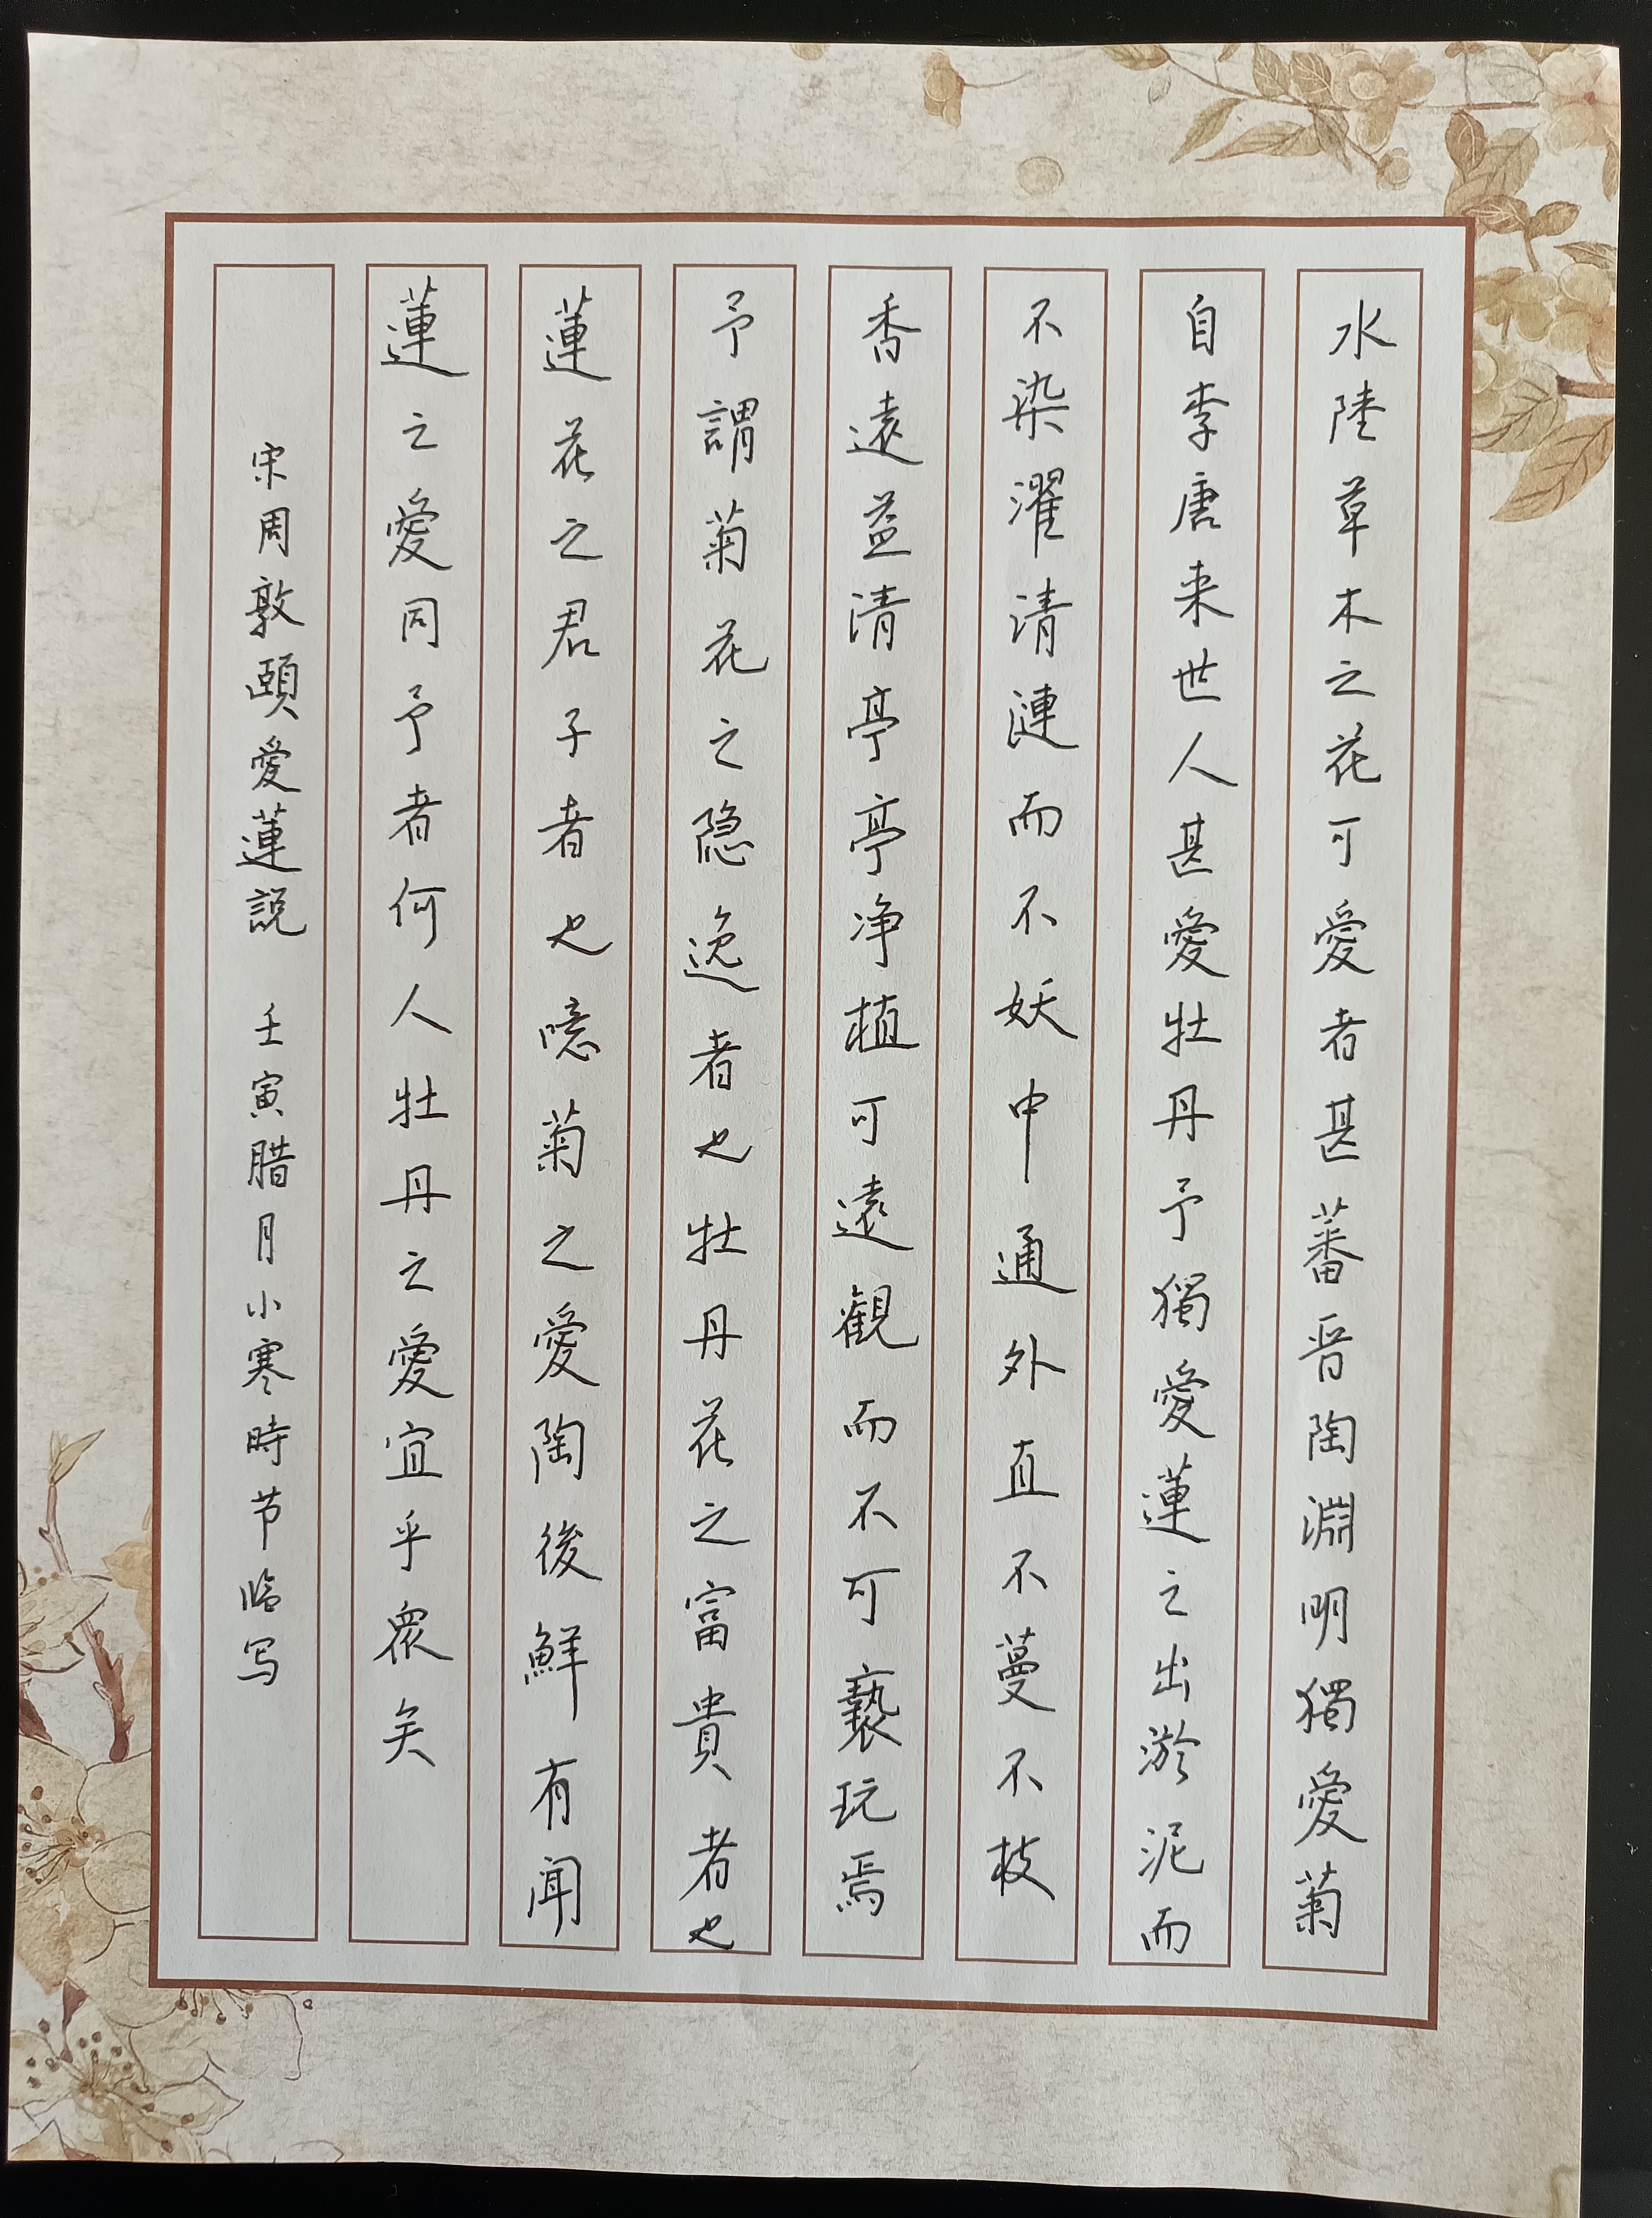 水陸草木之花可愛者甚蕃晋陶淵明獨愛菊
自李唐来世人甚愛牡丹予獨愛蓮之出淤泥而
不染濯清漣而不妖中通外直不蔓不枝
香遠益清亭亭净植可遠觀而不可褻玩焉
予謂菊花之隐逸者也牡丹花之富貴者也
蓮花之君子者也噫菊之愛陶後鮮有聞
蓮之愛同予者何人牡丹之愛宜乎衆矣
宋周敦頤愛蓮説 壬寅腊月小寒時节临写